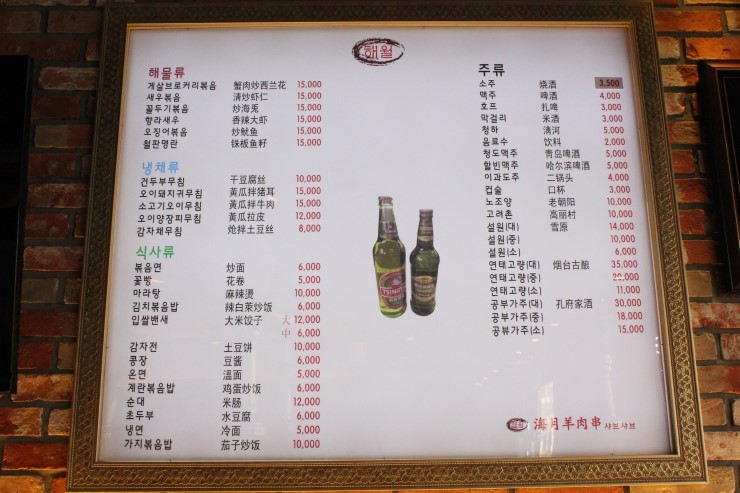 해월
해물류
게살브로커리볶음 蟹肉炒西兰花 15,000
새우볶음 清炒虾仁 15,000
꼴뚜기볶음 炒海兎 15,000
향라새우 香辣大虾 15,000
오징어볶음 炒鱿鱼 15,000
철판명란 铢板鱼籽 15,000
냉채류
건두부무침 干豆腐丝 10,000
오이돼지귀무침 黄瓜拌猪耳 15,000
소고기오이무침 黄瓜拌牛肉 15,000
오이양장피무침 黄瓜拉皮 12,000
감자채무침 炝拌土豆丝 8,000
식사류
볶음면 炒面 6,000
꽃빵 花卷 5,000
마라탕 麻辣烫 10,000
김치볶음밥 辣白菜炒饭 6,000
입쌀밴새 大米饺子 大 12,000
中 6,000
감자전 土豆饼 10,000
콩장 豆酱 6,000
온면 溫面 5,000
계란볶음밥 鸡蛋炒饭 6,000
순대 米肠 12,000
초두부 水豆腐 6,000
냉면 冷面 5,000
가지볶음밥 茄子炒饭 10,000
주류
소주 烧酒 3,500
맥주 啤酒 4,000
호프 扎啤 3,000
막걸리 米酒 3,000
청하 清河 5,000
음료수 饮料 2,000
청도맥주 青岛啤酒 5,000
할빈맥주 哈尔滨啤酒 5,000
이과도주 二锅头 4,000
컵술 口杯 3,000
노조양 老朝阳 10,000
고려촌 高丽村 10,000
설원(대) 雪原 14,000
설원(중) 10,000
설원(소) 6,000
연태고량(대) 烟台古酿 35,000
연태고량(중) 20,000
연태고량(소) 11,000
공부가주(대) 孔府家酒 30,000
공부가주(중) 18,000
공뷰가주(소) 15,000
TSINGTAO
해월 海月羊肉串 샤브샤브